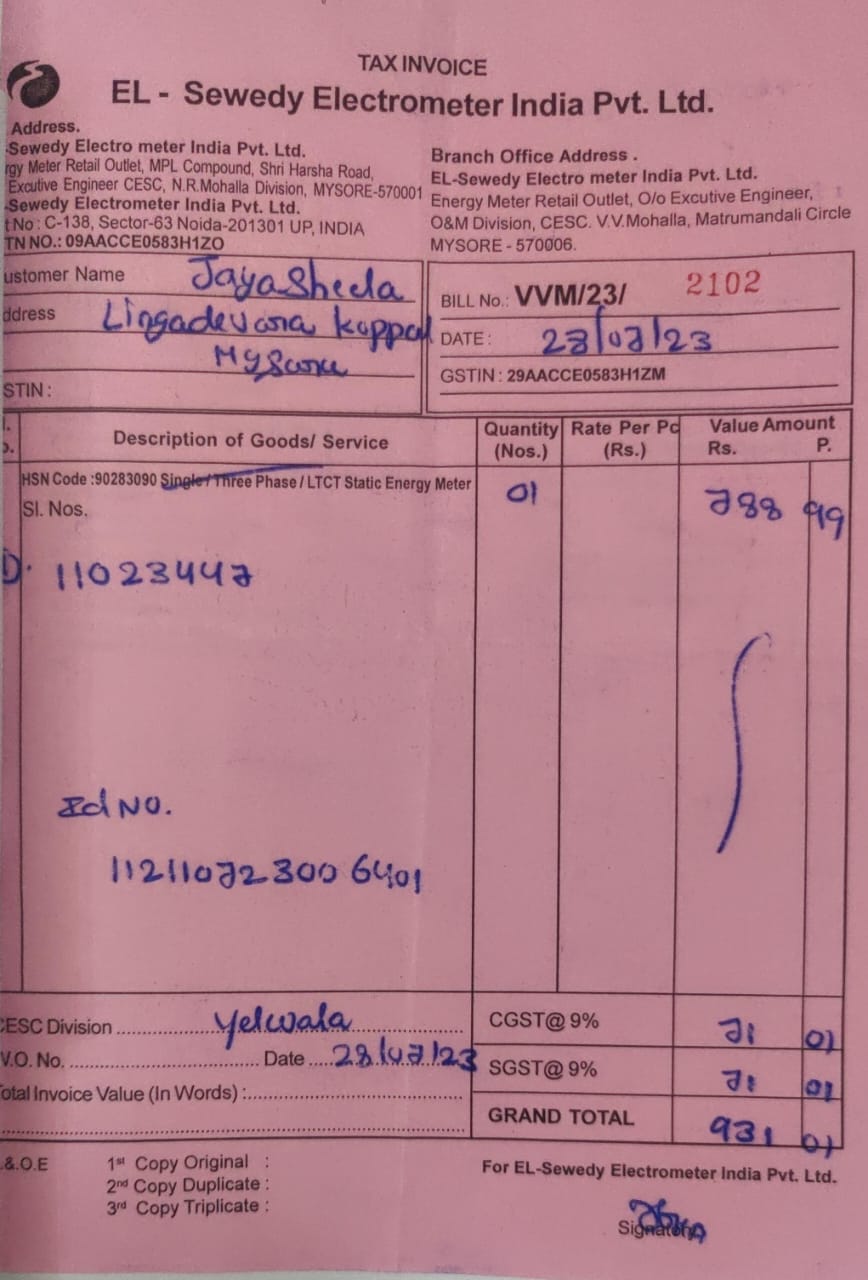 TAX INVOICE
EL - Sewedy Electrometer India Pvt. Ltd.
Address.
Sewedy Electro meter India Pvt. Ltd.
rgy Meter Retail Outlet, MPL Compound, Shri Harsha Road,
Excutive Engineer CESC, N.R.Mohalla Division, MYSORE-570001
Sewedy Electrometer India Pvt. Ltd.
t No : C-138, Sector-63 Noida-201301 UP, INDIA
TN NO.: 09AACCE0583H1ZO
Branch Office Address .
EL-Sewedy Electro meter India Pvt. Ltd.
Energy Meter Retail Outlet, O/o Excutive Engineer,
O&M Division, CESC. V.V.Mohalla, Matrumandali Circle
MYSORE - 570006.
ustomer Name Jayasheela
ddress Lingadevara koppal
Mysore
STIN :
BILL No.: VVM/23/ 2102
DATE : 28/07/23
GSTIN : 29AACCE0583H1ZM
Description of Goods/ Service Quantity (Nos.) Rate Per Pc (Rs.) Value Amount Rs. P.
HSN Code :90283090 Single / Three Phase / LTCT Static Energy Meter 01 788 99
Sl. Nos.
D. 11023447
Id NO.
112110723006401
CESC Division yelwala
V.O. No. Date 28/07/23
otal Invoice Value (In Words) :
CGST@ 9% 71 01
SGST@ 9% 71 01
GRAND TOTAL 931 01
.&.O.E
1st Copy Original :
2nd Copy Duplicate :
3rd Copy Triplicate :
For EL-Sewedy Electrometer India Pvt. Ltd.
Signatory